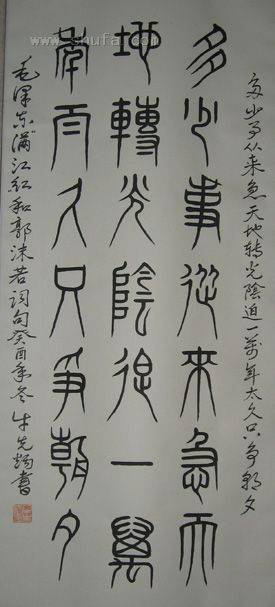 多少事从来急天地转光陰迫一萬年太久只争朝夕
多少事從來急天
地轉光陰迫一萬
年太久只爭朝夕
毛泽东满江红和郭沫若词句癸酉年冬牛先書